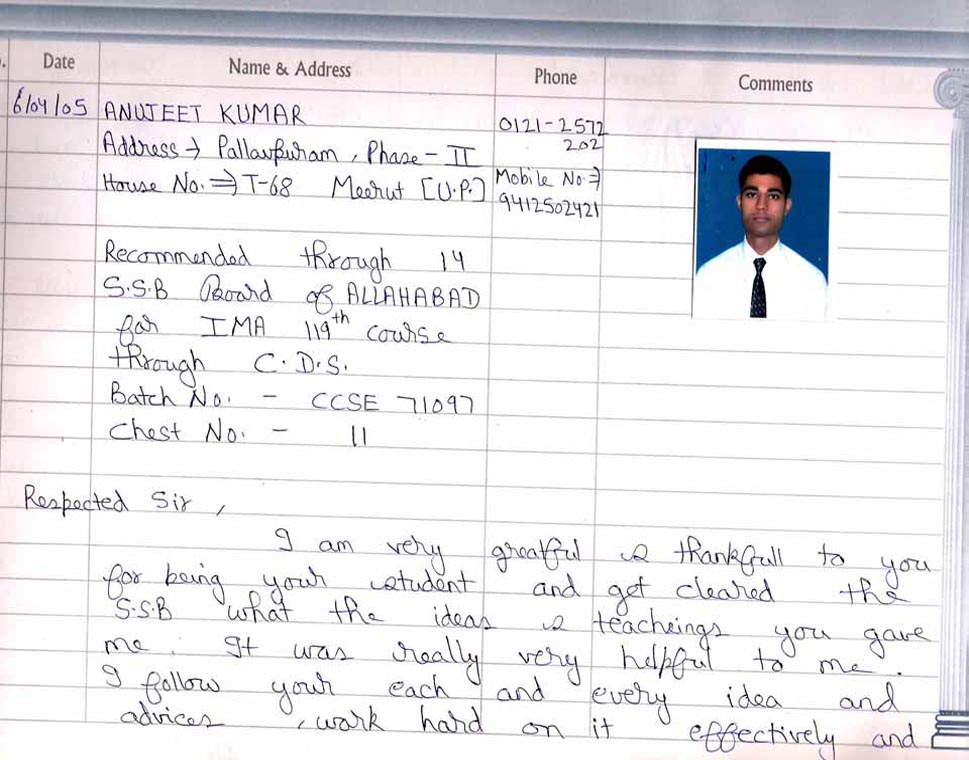 Date Name & Address Phone Comments
6/04/05 ANUJEET KUMAR 0121-2572
202
Address → Pallavpuram, Phase-II
House No. ⇒ T-68 Meerut [U.P.] Mobile No ⇒
9412502421
Recommended through 14
S.S.B Board of ALLAHABAD
for IMA 119th course
through C.D.S.
Batch No. - CCSE 71097
Chest No. - 11
Respected Sir,
I am very greatful & thankfull to you
for being your student and get cleared the
S.S.B what the ideas & teacheings you gave
me. It was really very helpful to me.
I follow your each and every idea and
advices, work hard on it effectively and